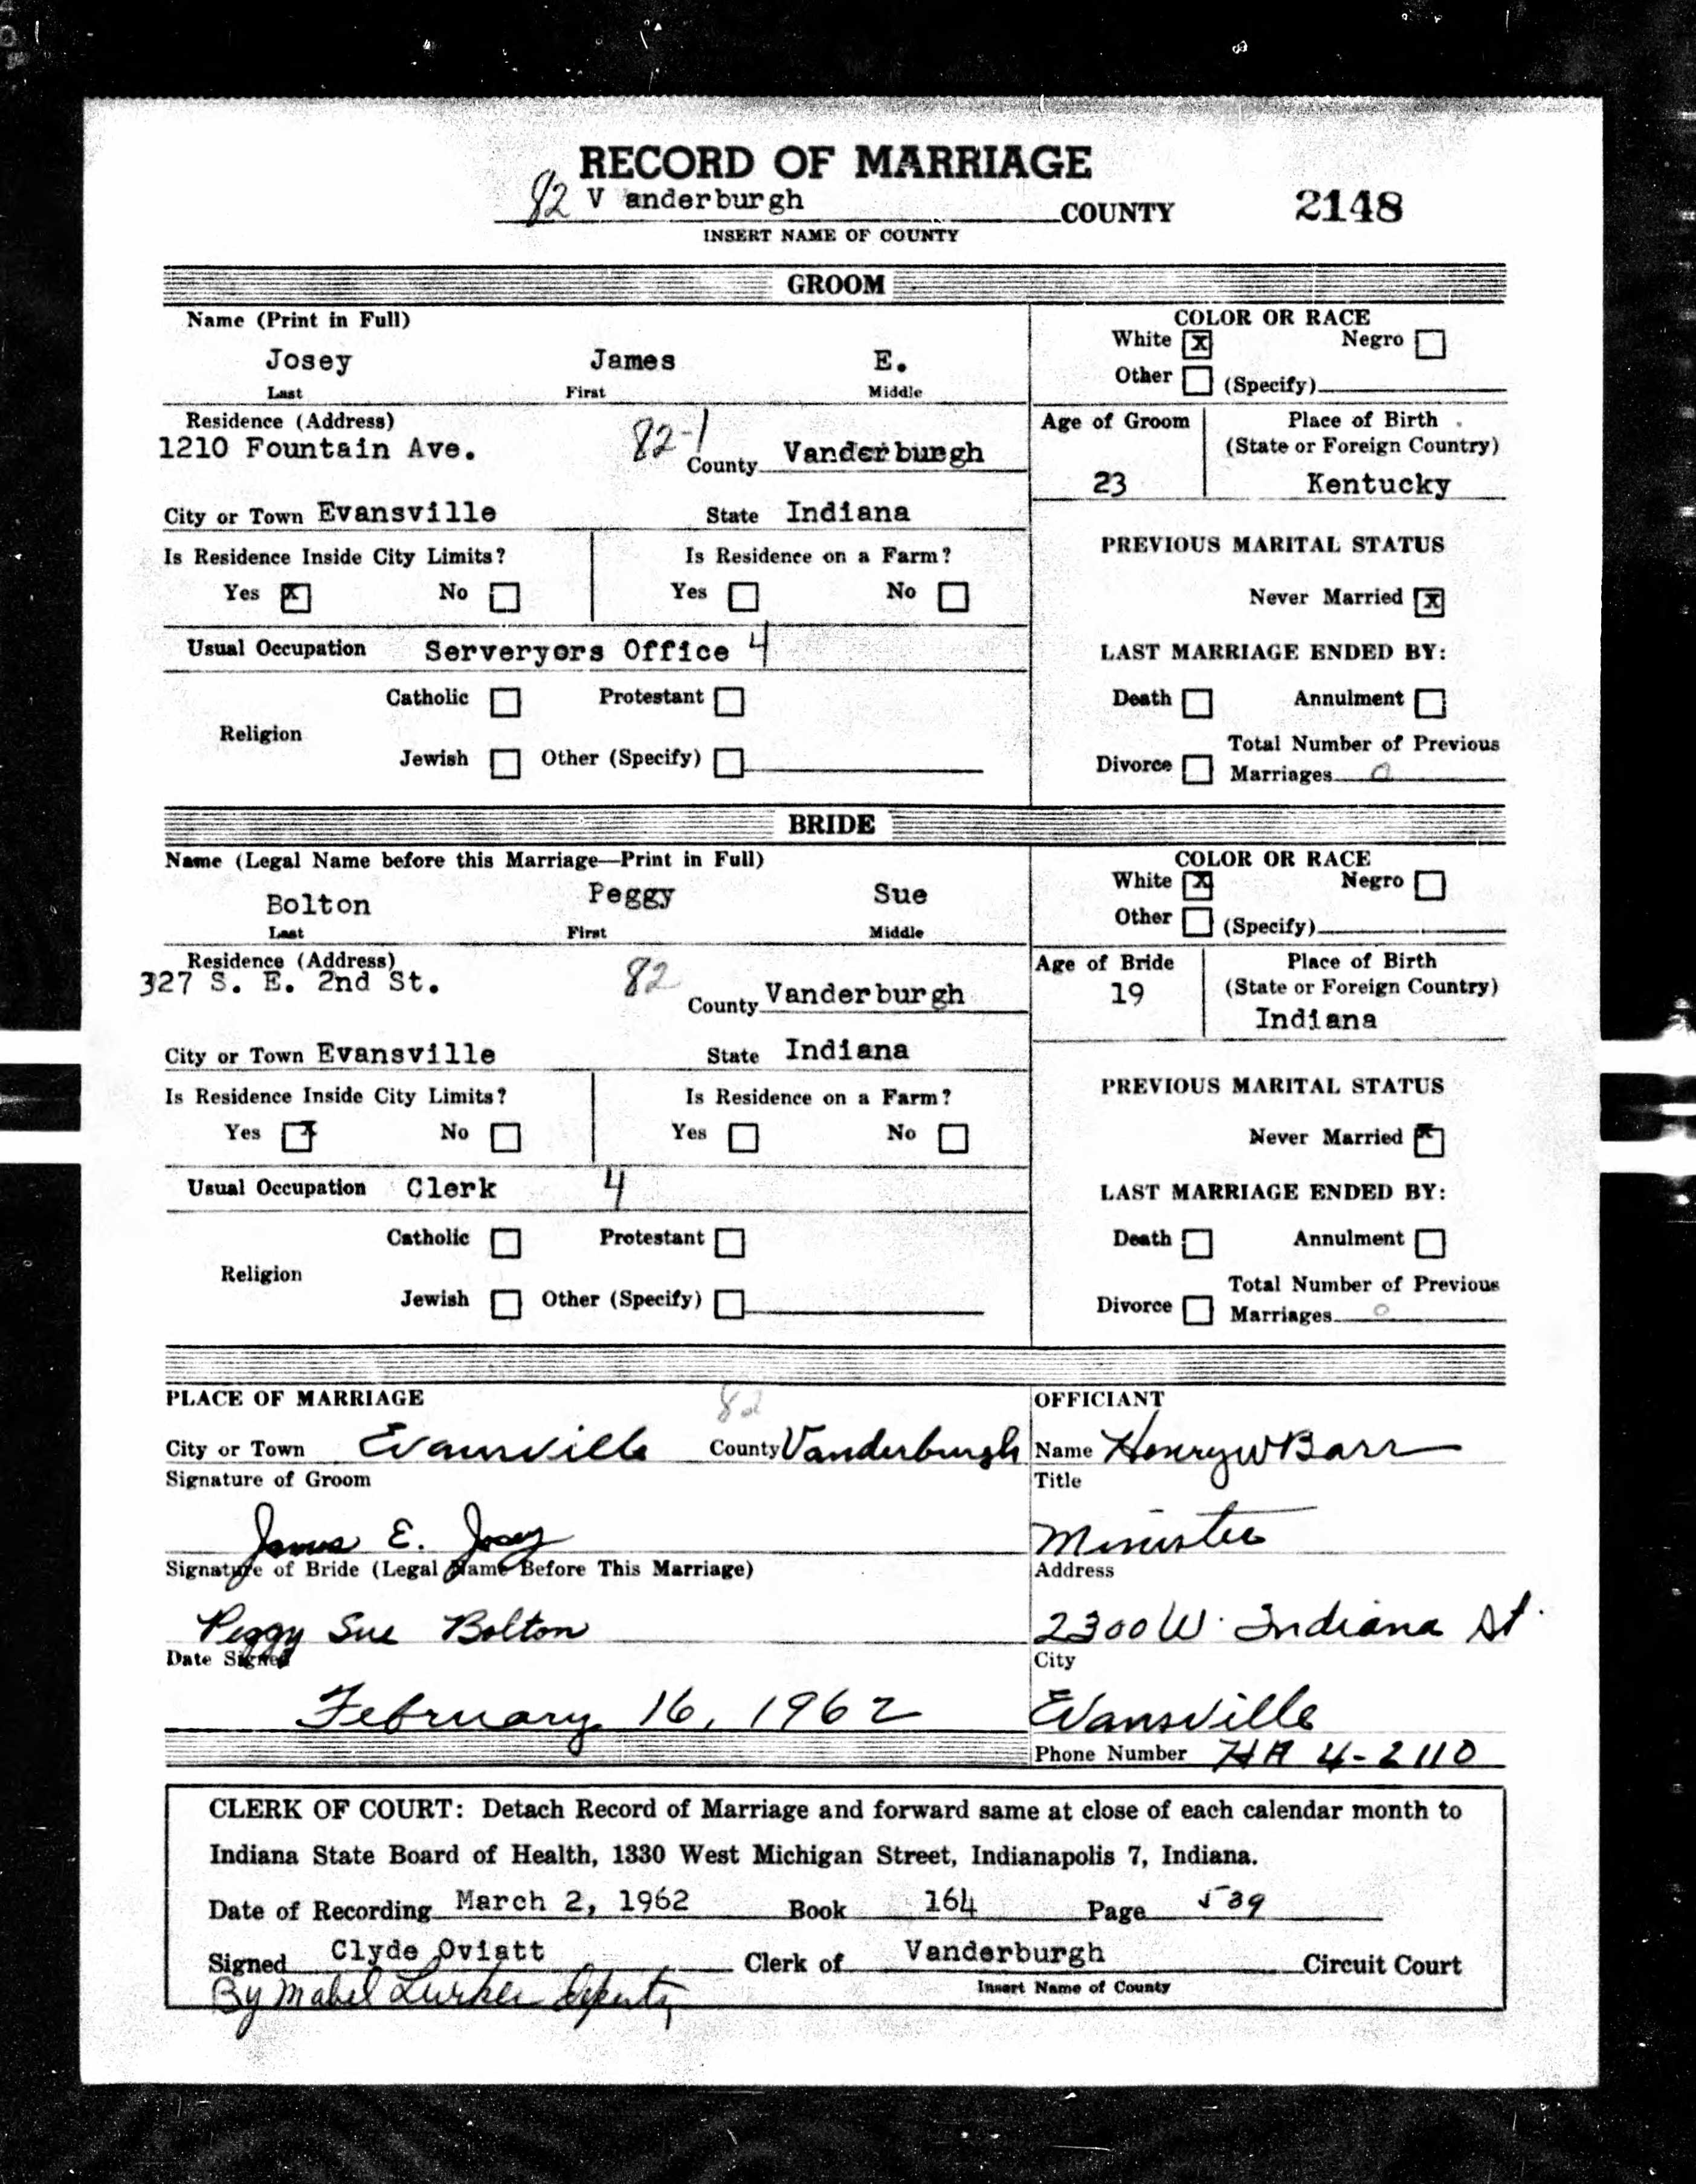 RECORD OF MARRIAGE
82 V anderburgh COUNTY 2148
INSERT NAME OF COUNTY
GROOM
Name (Print in Full)
Josey James E.
Last First Middle
COLOR OR RACE
White X Negro
Other (Specify)
Residence (Address)
1210 Fountain Ave. 82-1 County Vanderburgh
Age of Groom
23
Place of Birth
(State or Foreign Country)
Kentucky
City or Town Evansville State Indiana
Is Residence Inside City Limits? Is Residence on a Farm?
Yes X No Yes No
PREVIOUS MARITAL STATUS
Never Married X
Usual Occupation Serveryors Office 4
LAST MARRIAGE ENDED BY:
Catholic Protestant
Religion
Jewish Other (Specify)
Death Annulment
Divorce
Total Number of Previous
Marriages 0
BRIDE
Name (Legal Name before this Marriage—Print in Full)
Bolton Peggy Sue
Last First Middle
COLOR OR RACE
White X Negro
Other (Specify)
Residence (Address)
327 S. E. 2nd St. 82 County Vanderburgh
Age of Bride
19
Place of Birth
(State or Foreign Country)
Indiana
City or Town Evansville State Indiana
Is Residence Inside City Limits? Is Residence on a Farm?
Yes X No Yes No
PREVIOUS MARITAL STATUS
Never Married X
Usual Occupation Clerk 4
LAST MARRIAGE ENDED BY:
Catholic Protestant
Religion
Jewish Other (Specify)
Death Annulment
Divorce
Total Number of Previous
Marriages 0
PLACE OF MARRIAGE 82
City or Town Evansville County Vanderburgh
Signature of Groom
James E. Josey
Signature of Bride (Legal Name Before This Marriage)
Peggy Sue Bolton
Date Signed
February 16, 1962
OFFICIANT
Name Henry W Barr
Title
Minister
Address
2300 W. Indiana St.
City
Evansville
Phone Number HA 4-2110
CLERK OF COURT: Detach Record of Marriage and forward same at close of each calendar month to
Indiana State Board of Health, 1330 West Michigan Street, Indianapolis 7, Indiana.
Date of Recording March 2, 1962 Book 164 Page 539
Signed Clyde Oviatt Clerk of Vanderburgh Circuit Court
Insert Name of County
By Mabel Lurker deputy